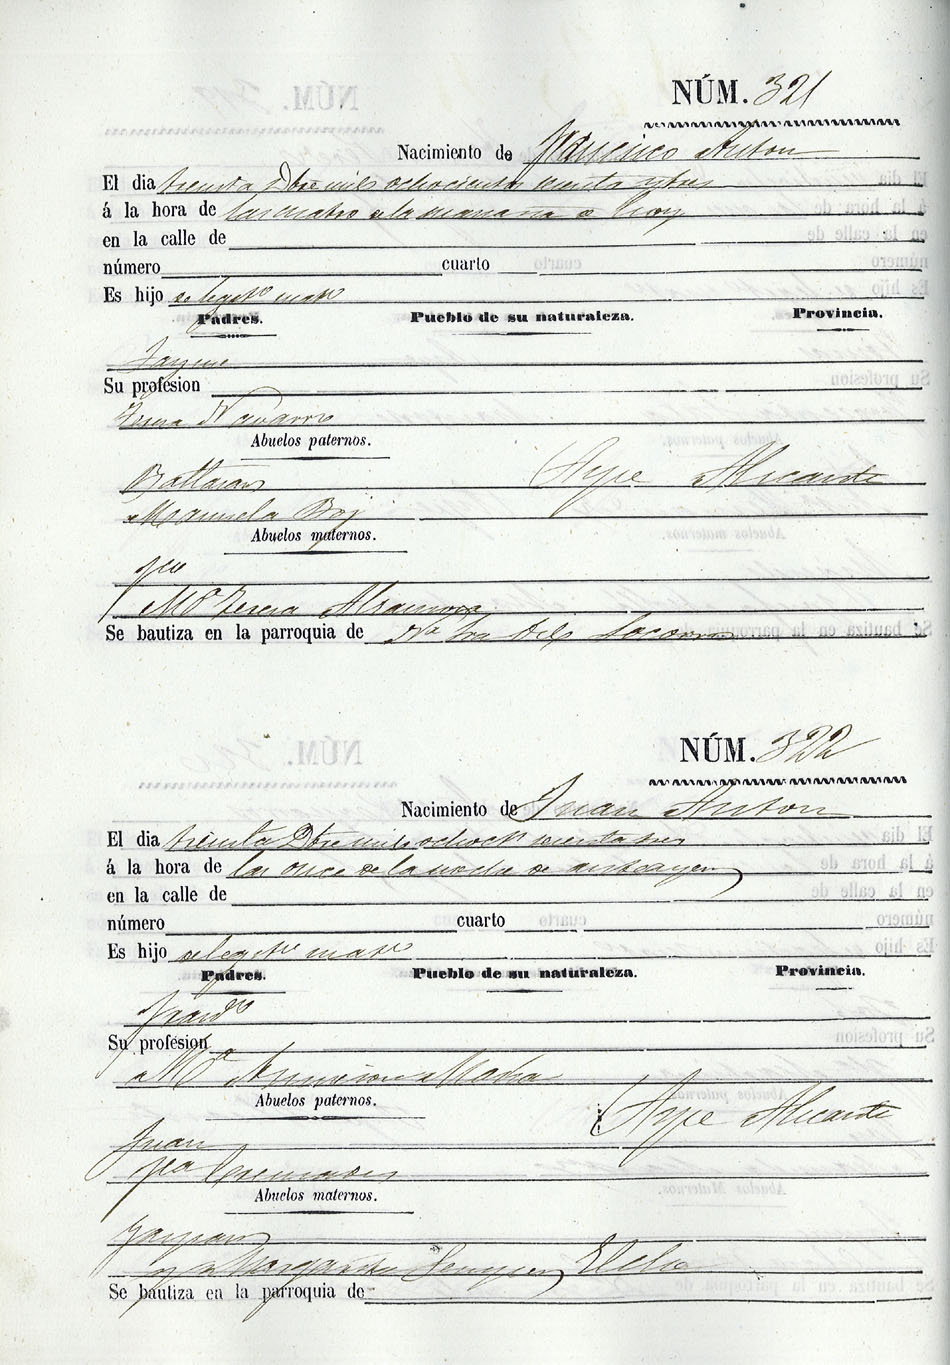 NÚM. 321
Nacimiento de Francisco Anton
El dia treinta Dbre mil ochocientos
á la hora de las cuatro de la mañana de hoy
en la calle de
número cuarto
Es hijo de legitº matº
Padres. Pueblo de su naturaleza. Provincia.
Jayme
Su profesion
Teresa Navarro
Abuelos paternos.
Baltasar Aspe Alicante
Manuela Boj
Abuelos maternos.
Mª Teresa
Se bautiza en la parroquia de Nª Sra del Socorro
NÚM. 322
Nacimiento de Juan Anton
El dia treinta Dbre mil ochocts
á la hora de las once de la noche de antes ayer
en la calle de
número cuarto
Es hijo de legitº matº
Padres. Pueblo de su naturaleza. Provincia.
Su profesion
Mª Asuncion
Abuelos paternos.
Aspe Alicante
Juan
Cremades
Abuelos maternos.
Margarita Elche
Se bautiza en la parroquia de